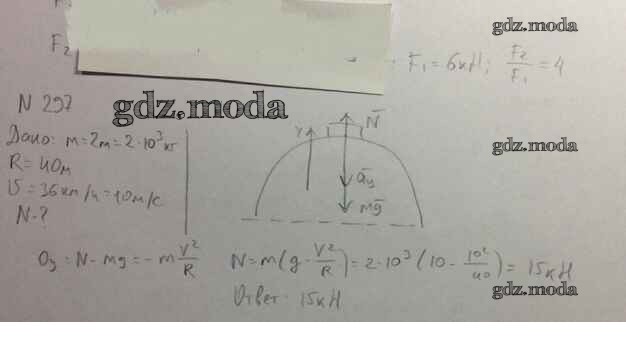 gdz.moda
F₂
F₁ = 6кН; F₂/F₁ = 4
N 297
gdz.moda
Дано: m = 2т = 2·10³кг
R = 40м
V = 36км/ч = 10м/с
N - ?
Y
N̄
āy
mḡ
gdz.moda
Oy = N - mg = -m V²/R
N = m(g - V²/R) = 2·10³(10 - 10²/40) = 15кН
gdz.moda
Ответ: 15кН